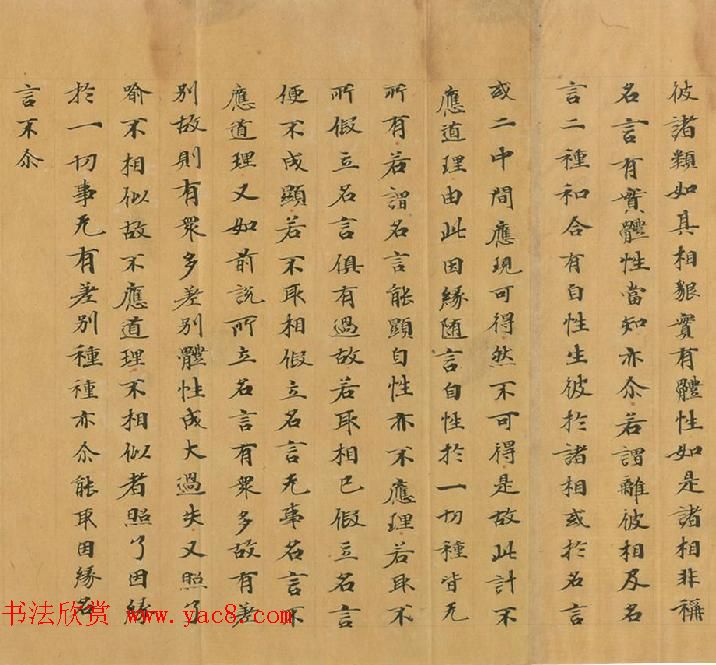 彼諸類如其相貌實有體性如是諸相非稱
名言有實體性當知亦尒若謂離彼相及名
言二種和合有自性生彼於諸相或於名言
或二中間應現可得然不可得是故此計不
應道理由此因緣随言自性於一切種皆无
所有若謂名言能顯自性亦不應理若取不
所假立名言俱有過故若取相已假立名言
便不成顯若不取相假立名言无事名言不
應道理又如前說所立名言有衆多故有差
別故則有衆多差別體性成大過失又照了
喻不相似故不應道理不相似者照了因緣
於一切事无有差別種種亦尒能取因緣名
言不尒
书法欣赏 www.yac8.com